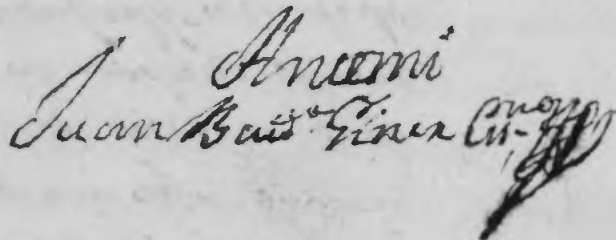 Antemi
Juan Baut.ª Giner